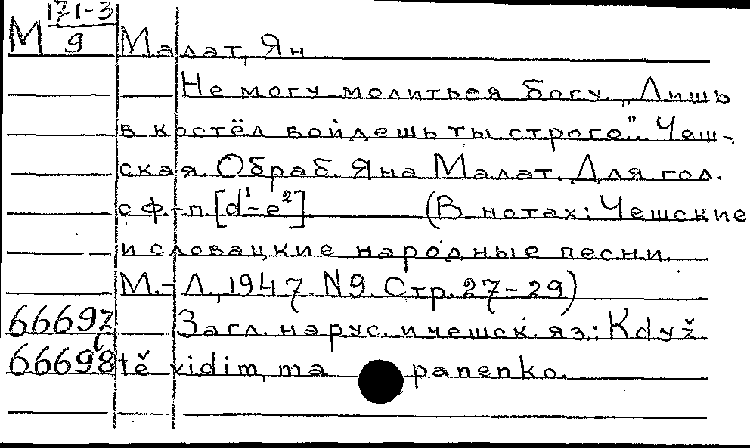 М 171-3/9 Малат, Ян
Не могу молиться богу. „Лишь
в костёл войдешь ты строго". Чеш-
ская. Обраб. Яна Малат. Для гол.
с ф.-п. [d¹-e²] (В нотах: Чешские
и словацкие народные песни.
М.-Л., 1947 N9. Стр. 27-29)
66697 Загл. на рус. и чешск. яз.: Když
66698 tě vidim, ma panenko.